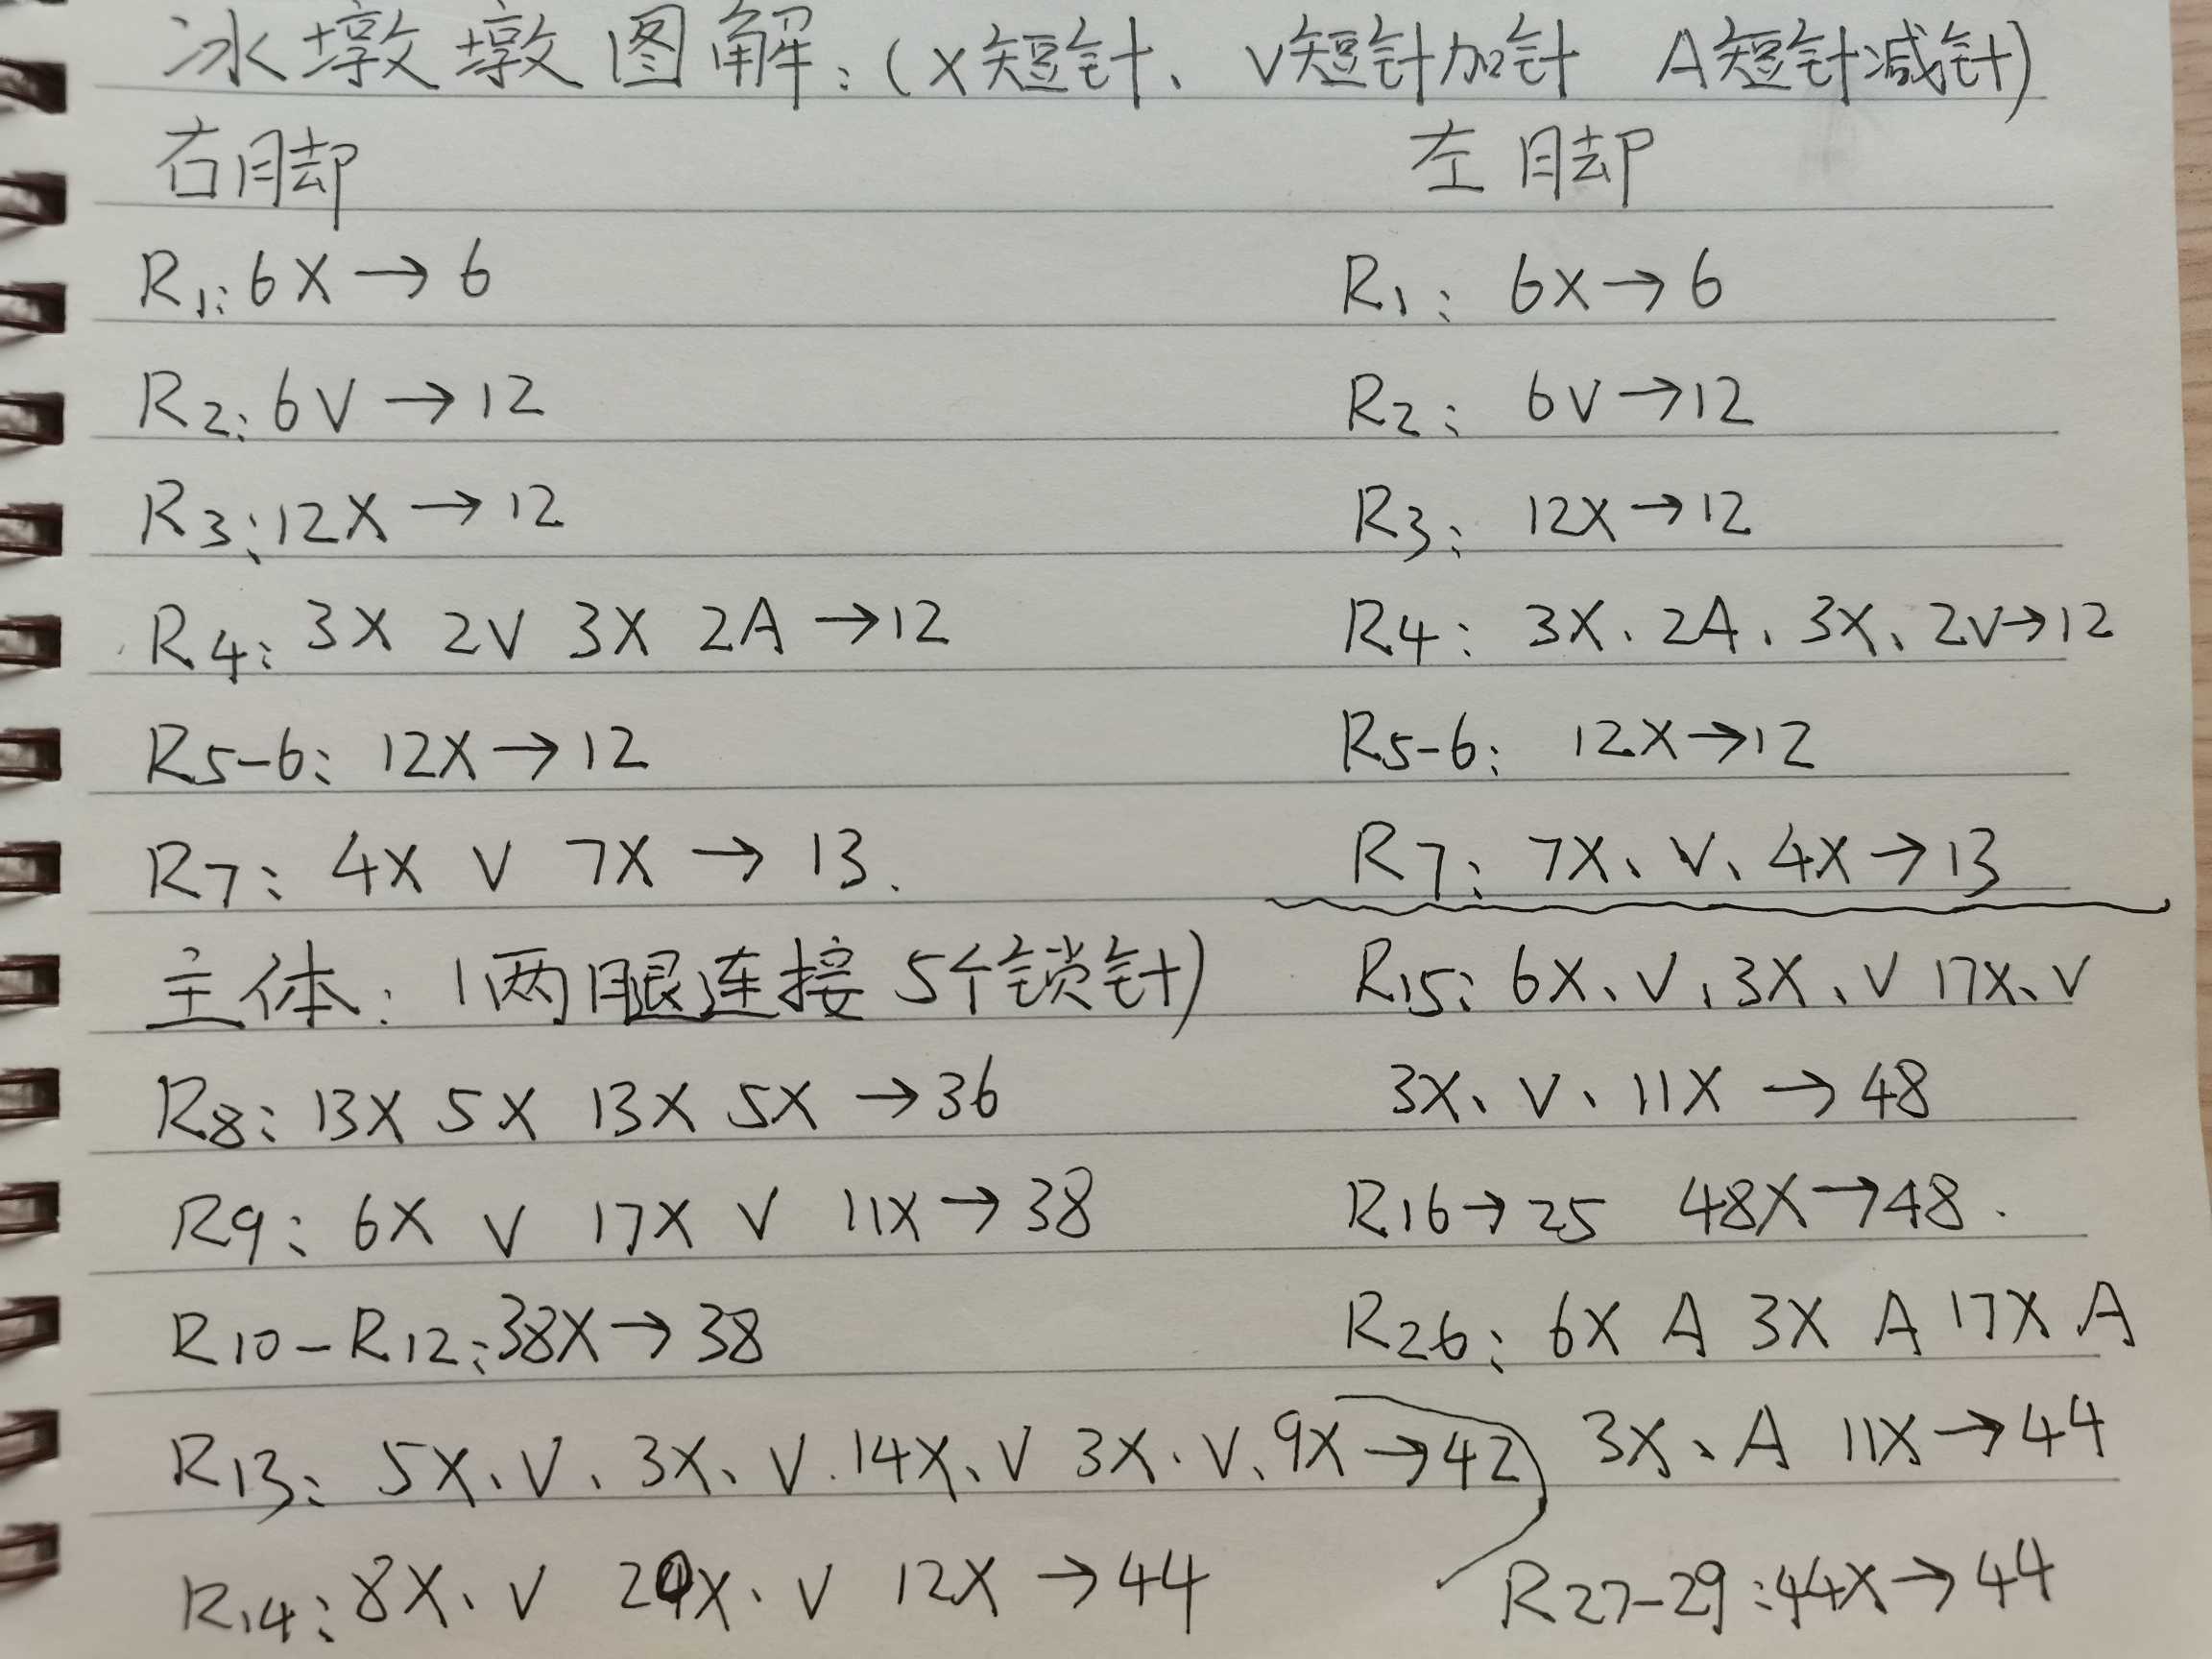 冰墩墩图解:(X短针、V短针加针 A短针减针)
右脚
R1:6X→6
R2:6V→12
R3:12X→12
R4:3X 2V 3X 2A→12
R5-6:12X→12
R7:4X V 7X→13.
左脚
R1:6X→6
R2:6V→12
R3:12X→12
R4:3X、2A、3X、2V→12
R5-6:12X→12
R7:7X、V、4X→13
主体:(两腿连接5个锁针)
R8:13X 5X 13X 5X→36
R9:6X V 17X V 11X→38
R10-R12:38X→38
R13:5X、V、3X、V.14X、V 3X、V、9X→42
R14:8X、V 20X、V 12X→44
R15:6X、V、3X、V 17X、V
3X、V、11X→48
R16→25 48X→48.
R26:6X A 3X A 17X A
3X、A 11X→44
R27-29:44X→44